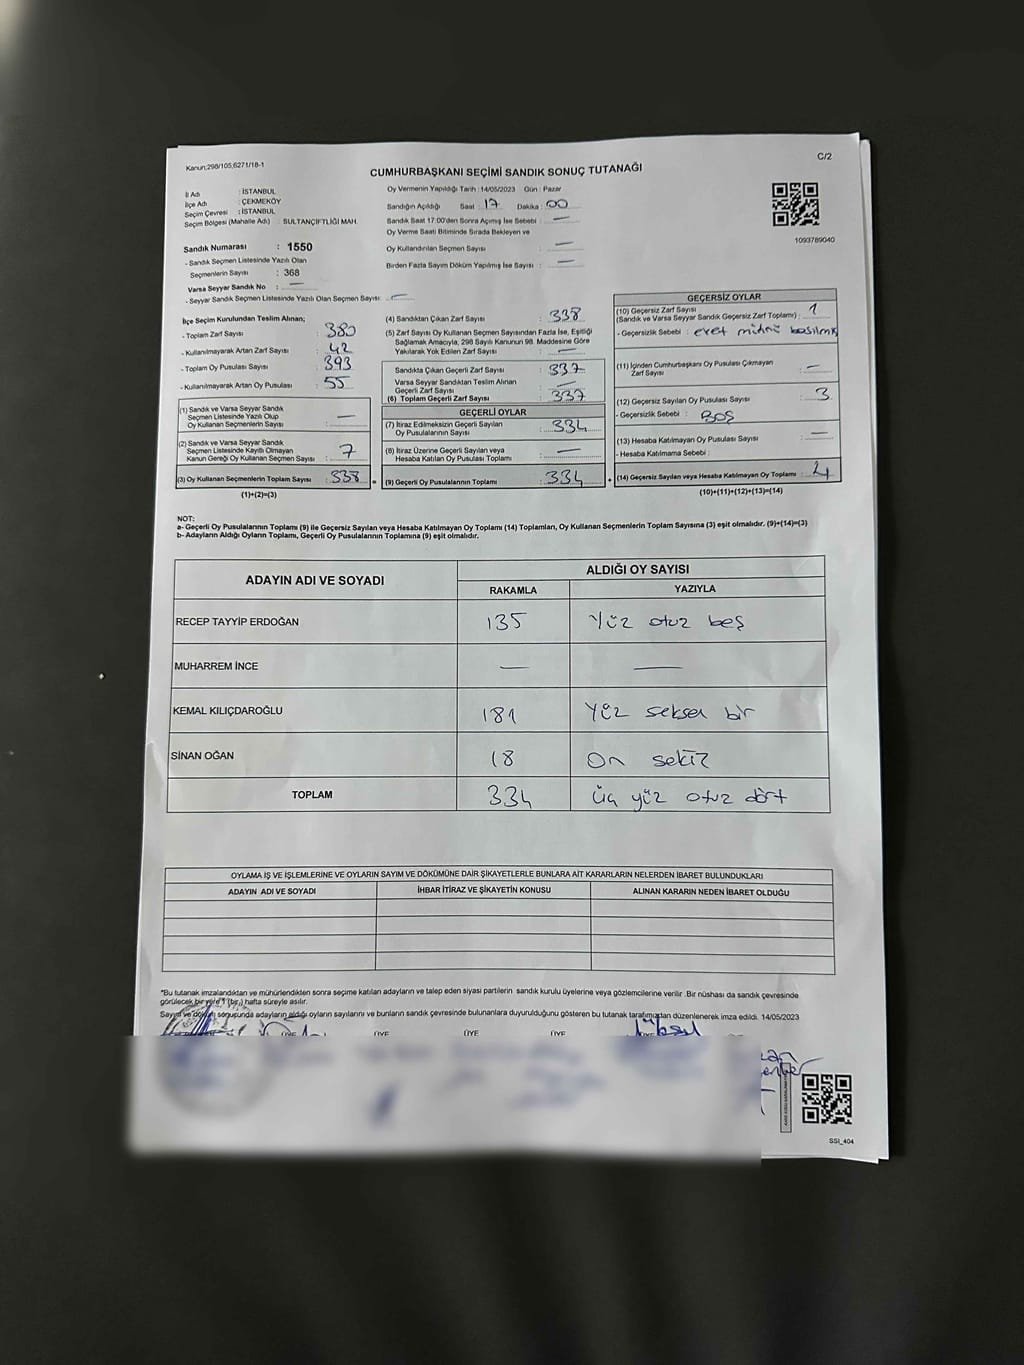 Kanun:298/105,6271/18-1
C/2
CUMHURBAŞKANI SEÇİMİ SANDIK SONUÇ TUTANAĞI
İl Adı : İSTANBUL
İlçe Adı : ÇEKMEKÖY
Seçim Çevresi : İSTANBUL
Seçim Bölgesi (Mahalle Adı) : SULTANÇİFTLİĞİ MAH.
Sandık Numarası : 1550
- Sandık Seçmen Listesinde Yazılı Olan
Seçmenlerin Sayısı : 368
Varsa Seyyar Sandık No : —
- Seyyar Sandık Seçmen Listesinde Yazılı Olan Seçmen Sayısı: —
Oy Vermenin Yapıldığı Tarih : 14/05/2023 Gün : Pazar
Sandığın Açıldığı Saat : 17 Dakika : 00
Sandık Saat 17:00'den Sonra Açımış İse Sebebi : —
Oy Verme Saati Bitiminde Sırada Bekleyen ve
Oy Kullandırılan Seçmen Sayısı : —
Birden Fazla Sayım Döküm Yapılmış İse Sayısı : —
1093789040
İlçe Seçim Kurulundan Teslim Alınan;
- Toplam Zarf Sayısı : 380
- Kullanılmayarak Artan Zarf Sayısı : 42
- Toplam Oy Pusulası Sayısı : 393
- Kullanılmayarak Artan Oy Pusulası : 55
(1) Sandık ve Varsa Seyyar Sandık
Seçmen Listesinde Yazılı Olup
Oy Kullanan Seçmenlerin Sayısı : —
(2) Sandık ve Varsa Seyyar Sandık
Seçmen Listesinde Kayıtlı Olmayan
Kanun Gereği Oy Kullanan Seçmen Sayısı : 7
(3) Oy Kullanan Seçmenlerin Toplam Sayısı : 338
(1)+(2)=(3)
(4) Sandıktan Çıkan Zarf Sayısı : 338
(5) Zarf Sayısı Oy Kullanan Seçmen Sayısından Fazla İse, Eşitliği
Sağlamak Amacıyla, 298 Sayılı Kanunun 98. Maddesine Göre
Yakılarak Yok Edilen Zarf Sayısı : —
Sandıkta Çıkan Geçerli Zarf Sayısı : 337
Varsa Seyyar Sandıktan Teslim Alınan
Geçerli Zarf Sayısı : —
(6) Toplam Geçerli Zarf Sayısı : 337
GEÇERLİ OYLAR
(7) İtiraz Edilmeksizin Geçerli Sayılan
Oy Pusulalarının Sayısı : 334
(8) İtiraz Üzerine Geçerli Sayılan veya
Hesaba Katılan Oy Pusulası Toplamı : —
(9) Geçerli Oy Pusulalarının Toplamı : 334
GEÇERSİZ OYLAR
(10) Geçersiz Zarf Sayısı
(Sandık ve Varsa Seyyar Sandık Geçersiz Zarf Toplamı) : 1
- Geçersizlik Sebebi : evet mührü basılmış
(11) İçinden Cumhurbaşkanı Oy Pusulası Çıkmayan
Zarf Sayısı : —
(12) Geçersiz Sayılan Oy Pusulası Sayısı : 3
- Geçersizlik Sebebi : BOŞ
(13) Hesaba Katılmayan Oy Pusulası Sayısı : —
- Hesaba Katılmama Sebebi :
(14) Geçersiz Sayılan veya Hesaba Katılmayan Oy Toplamı : 4
(10)+(11)+(12)+(13)=(14)
NOT:
a- Geçerli Oy Pusulalarının Toplamı (9) ile Geçersiz Sayılan veya Hesaba Katılmayan Oy Toplamı (14) Toplamları, Oy Kullanan Seçmenlerin Toplam Sayısına (3) eşit olmalıdır. (9)+(14)=(3)
b- Adayların Aldığı Oyların Toplamı, Geçerli Oy Pusulalarının Toplamına (9) eşit olmalıdır.
ADAYIN ADI VE SOYADI ALDIĞI OY SAYISI
RAKAMLA YAZIYLA
RECEP TAYYİP ERDOĞAN 135 Yüz otuz beş
MUHARREM İNCE — —
KEMAL KILIÇDAROĞLU 181 Yüz seksen bir
SİNAN OĞAN 18 On sekiz
TOPLAM 334 üç yüz otuz dört
OYLAMA İŞ VE İŞLEMLERİNE VE OYLARIN SAYIM VE DÖKÜMÜNE DAİR ŞİKAYETLERLE BUNLARA AİT KARARLARIN NELERDEN İBARET BULUNDUKLARI
ADAYIN ADI VE SOYADI İHBAR İTİRAZ VE ŞİKAYETİN KONUSU ALINAN KARARIN NEDEN İBARET OLDUĞU
*Bu tutanak imzalandıktan ve mühürlendikten sonra seçime katılan adayların ve talep eden siyasi partilerin sandık kurulu üyelerine veya gözlemcilerine verilir .Bir nüshası da sandık çevresinde
görülecek bir yere 1 (bir) hafta süreyle asılır.
Sayım ve döküm sonuçunda adayların aldığı oyların sayılarını ve bunların sandık çevresinde bulunanlara duyurulduğunu gösteren bu tutanak tarafımızdan düzenlenerek imza edildi. 14/05/2023
ÜYE ÜYE ÜYE
SSI_404